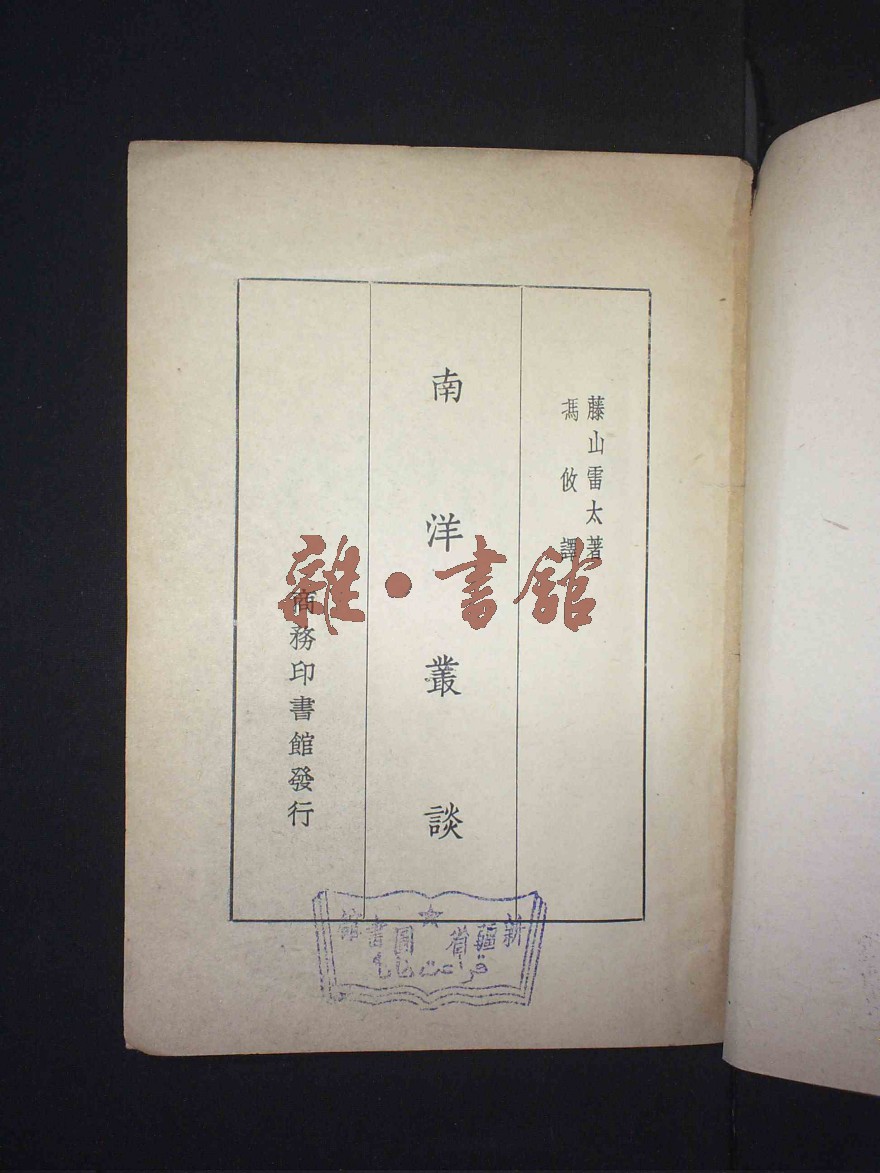 藤山雷太著
馮攸譯
南洋叢談
商務印書館發行
雜·書館
新疆省圖書館